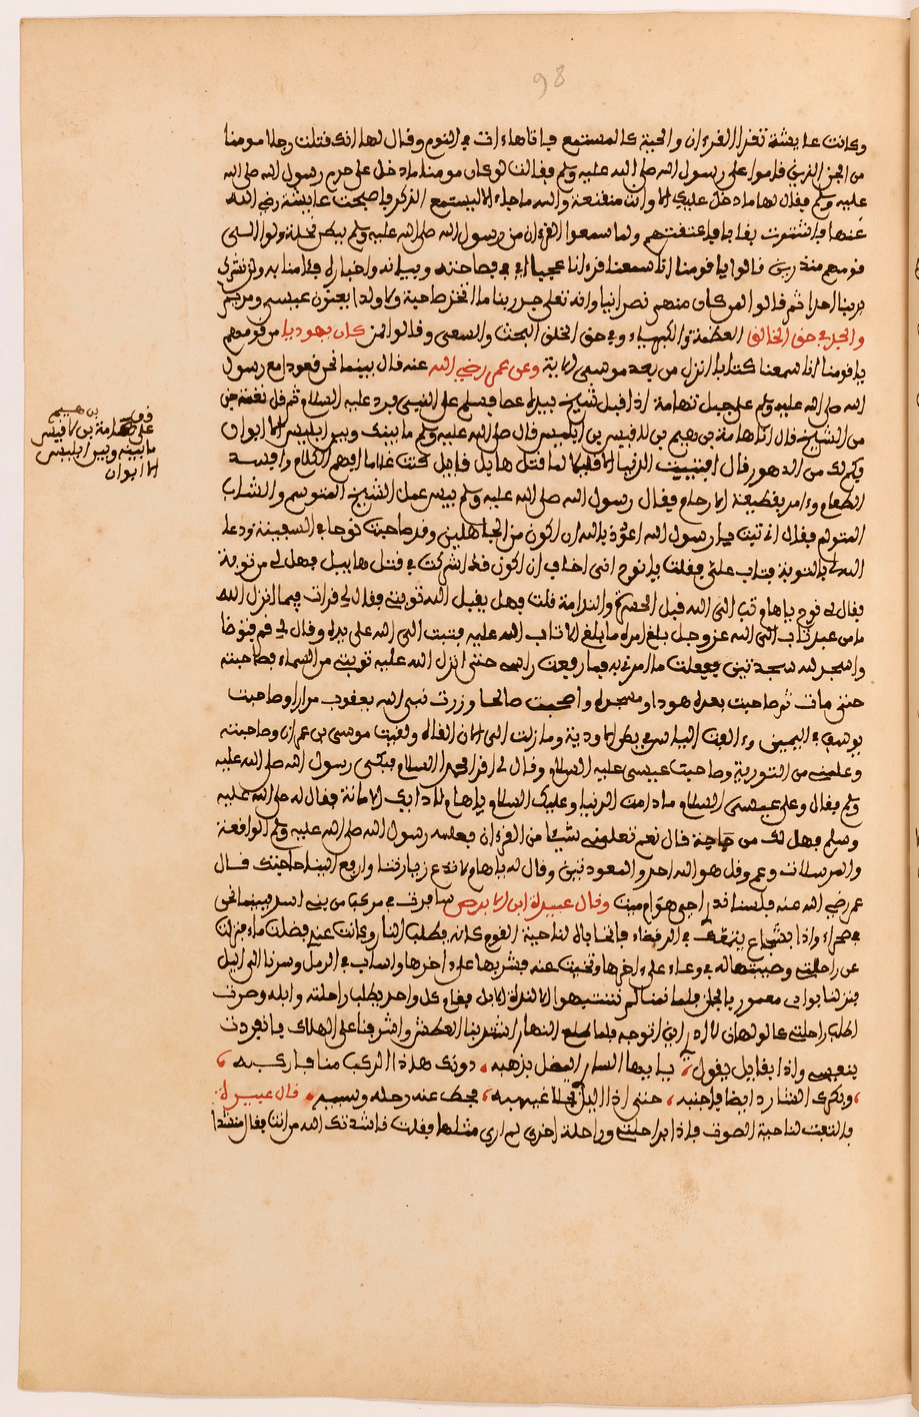 98
وكانت عايشة تقرا القرءان والحية كالمستمع فاتاها ءات في النوم وقال لها انك قتلت رجلا مومنا
من الجن الذين قدموا على رسول الله صلى الله عليه وسلم فقالت لو كان مومنا ما دخل على حرم رسول الله صلى الله
عليه وسلم فقال لها ما دخل عليك الا وانت متقنعة والله ما جاء الا ليستمع الذكر فاصبحت عايشة رضي الله
عنها فاشترت رقابا فاعتقتهم ولما سمعوا القرءان من رسول الله صلى الله عليه وسلم ببطن نخلة ولوا الى
قومهم منذرين قالوا يا قومنا انا سمعنا قرءانا عجبا اي في فصاحته وبيانه واخباره فئامنا به ولن نشرك
بربنا احدا ثم قالوا لمن كان منهم نصرانيا وانه تعلى جد ربنا ما اتخذ صاحبة ولا ولدا يعنون عيسى ومريم
والجد في حق الخالق العظمة والكبرياء وفي حق الخلق البخت والسعي وقالوا لمن كان يهوديا من قومهم
يا قومنا انا سمعنا كتابا انزل من بعد موسى الاية وعن عمر رضي الله عنه قال بينما نحن قعودا مع رسول
الله صلى الله عليه وسلم على جبل تهامة اذ اقبل شيخ بيده عصا فسلم على النبي فرد عليه السلام ثم قال نغمة جن
من الشيخ قال انا هامة بن هيم بن لاقيس بن ابليس قال صلى الله عليه وسلم ما بينك وبين ابليس الا ابوان
فكم لك من الدهور قال افنيت الدنيا الا قليلا لما قتل هابيل قابيل كنت غلاما افهم الكلام وافسد
الطعام وءامر بقطيعة الارحام فقال رسول الله صلى الله عليه وسلم بيس عمل الشيخ المتوسم والشاب
المتولم فقال اني تبت يا رسول الله اعوذ بالله ان اكون من الجاهلين وقد صاحبت نوحا في السفينة ودعا
الله بالتوبة فتاب علي فقلت يا نوح اني اخاف ان اكون قد اشركت في قتل هابيل فهل لي من توبة
فقال لي نوح يا هام تب الى الله قبل الحسرة والندامة قلت وهل يقبل الله توبتي فقال لي قرات فيما انزل الله
ما من عبد تاب الى الله عز وجل بلغ امره ما بلغ الا تاب الله عليه فتبت الى الله على يده وقال لي قم فتوضا
واسجد لله سجدتين ففعلت ما امرني به فما رفعت راسي حتى انزل الله عليه توبتي من السماء فصاحبته
حتى مات ثم صاحبت بعده هودا ومسجده واصحبت صالحا وزرت نبي الله يعقوب مرارا وصاحبت
يوسف في السجن وءالفت الياس في بطن الاودية وما زلت الى الان القاه ولقيت موسى بن عمران وصاحبته
وعلمني من التورية وصاحبت عيسى عليه السلام وقال لي اقرا محمدا السلام فبكى رسول الله صلى الله عليه
وسلم فقال وعلى عيسى السلام ما دامت الدنيا وعليك السلام يا هام لادايك الامانة فقال له صلى الله عليه
وسلم فهل لك من حاجة قال نعم تعلمني شيا من القرءان فعلمه رسول الله صلى الله عليه وسلم الواقعة
والمرسلات وعم وقل هو الله احد والمعوذتين وقال له يا هام لا تدع زيارتنا وارفع الينا حاجتك قال
عمر رضي الله عنه فلسنا ندر احي هو ام ميت وقال عبيد الله ابن الابرص سافرت في مركب من بني اسد فبينما نحن
في صحراء واذا بشجاع يتقلب في الرمضاء فانحاز لي لناحية القوم كانه يطلب الناروكانت عندي فضلت ماء فنزلت
عن راحلتي وصببتها له في وعاء على ءاخرها وتخيت عنه فشربها على ءاخرها وانساب في الرمل وسرنا الى الليل
فنزلنا بوادي معمور بالجن فلما نمنا لم ننتبهوا الا لنداء الابل فقام كل واحد يطلب راحلته وابله وصرت
اطلب راحلتي كالولهان لا ادر اين اتوجه فلما طلع النهار اشتد بنا العطش واشرفنا على الهلاك فانفردت
بنفسي واذا بقايل يقول يا ايها السار المضل مذهبه دونك هذا الركب منا فاركبه
وبكرك الشارد ايضا فاجنبه حتى اذا الليل تجلا غيهبه فحط عنه رحله وسيبه قال عبيد له
فالتفت لناحية الصوت فاذا براحلتي وراحلة اخرى لم ارى مثلها فقلت ناشدتك الله من انت فقال منشدا
قوي بن هيم
على هامة بن لاقيس
ما بينه وبين ابليس
الا ابوان